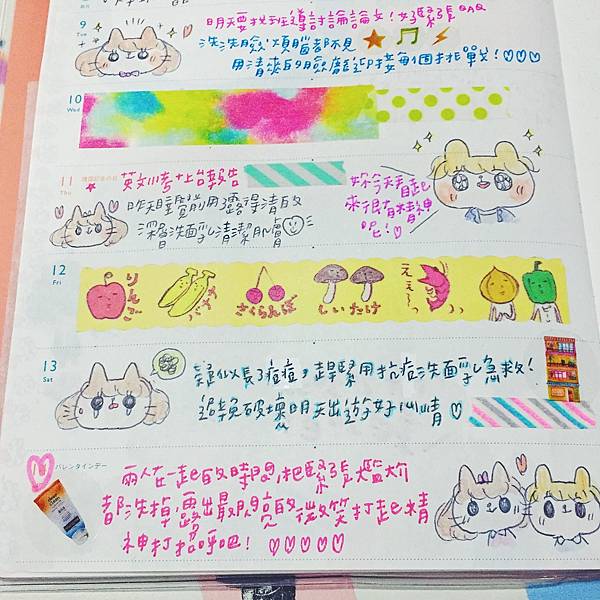 9
Tue
明天要找班導討論論文！好緊張 QAQ
洗洗臉、煩腦都不見
用清爽的臉龐迎接每個挑戰！♡♡♡
10
Wed
11
Thu
建国記念の日
英文小考+上台報告
昨天睡覺前用露得清的
深層洗面乳清潔肌膚
妳今天看起
來很有精神
呢！♡
12
Fri
りんご
バナナ
さくらんぼ
しいたけ
えぇ～っ
13
Sat
疑似長了痘痘，趕緊用抗痘洗面乳急救！
避免破壞明天出遊好心情♡
バレンタインデー
兩人在一起的時間，把緊張尷尬
都洗掉，露出最閃亮的微笑打起精
神打招呼吧！♡♡♡♡♡